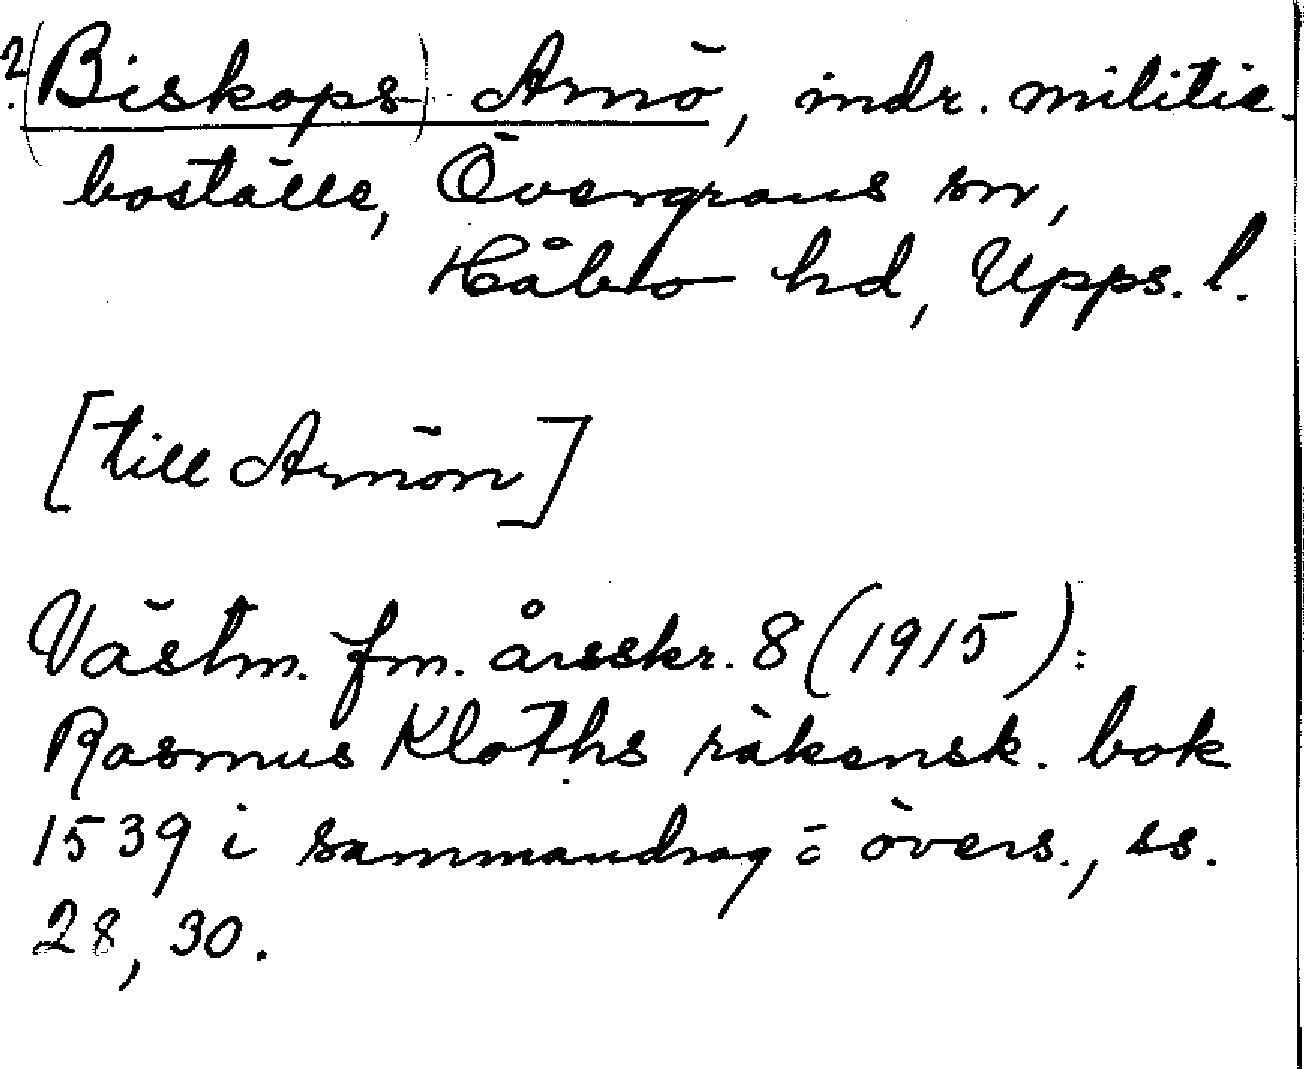 ?(Biskops-) Arnö, indr. militie-
boställe, Övergrans sn,
Håbo hd, Upps. l.
[till Arnön]
Västm. fm. årsskr. 8 (1915):
Rasmus Kloths räkensk. bok
1539 i sammandrag o övers., ss.
28, 30.